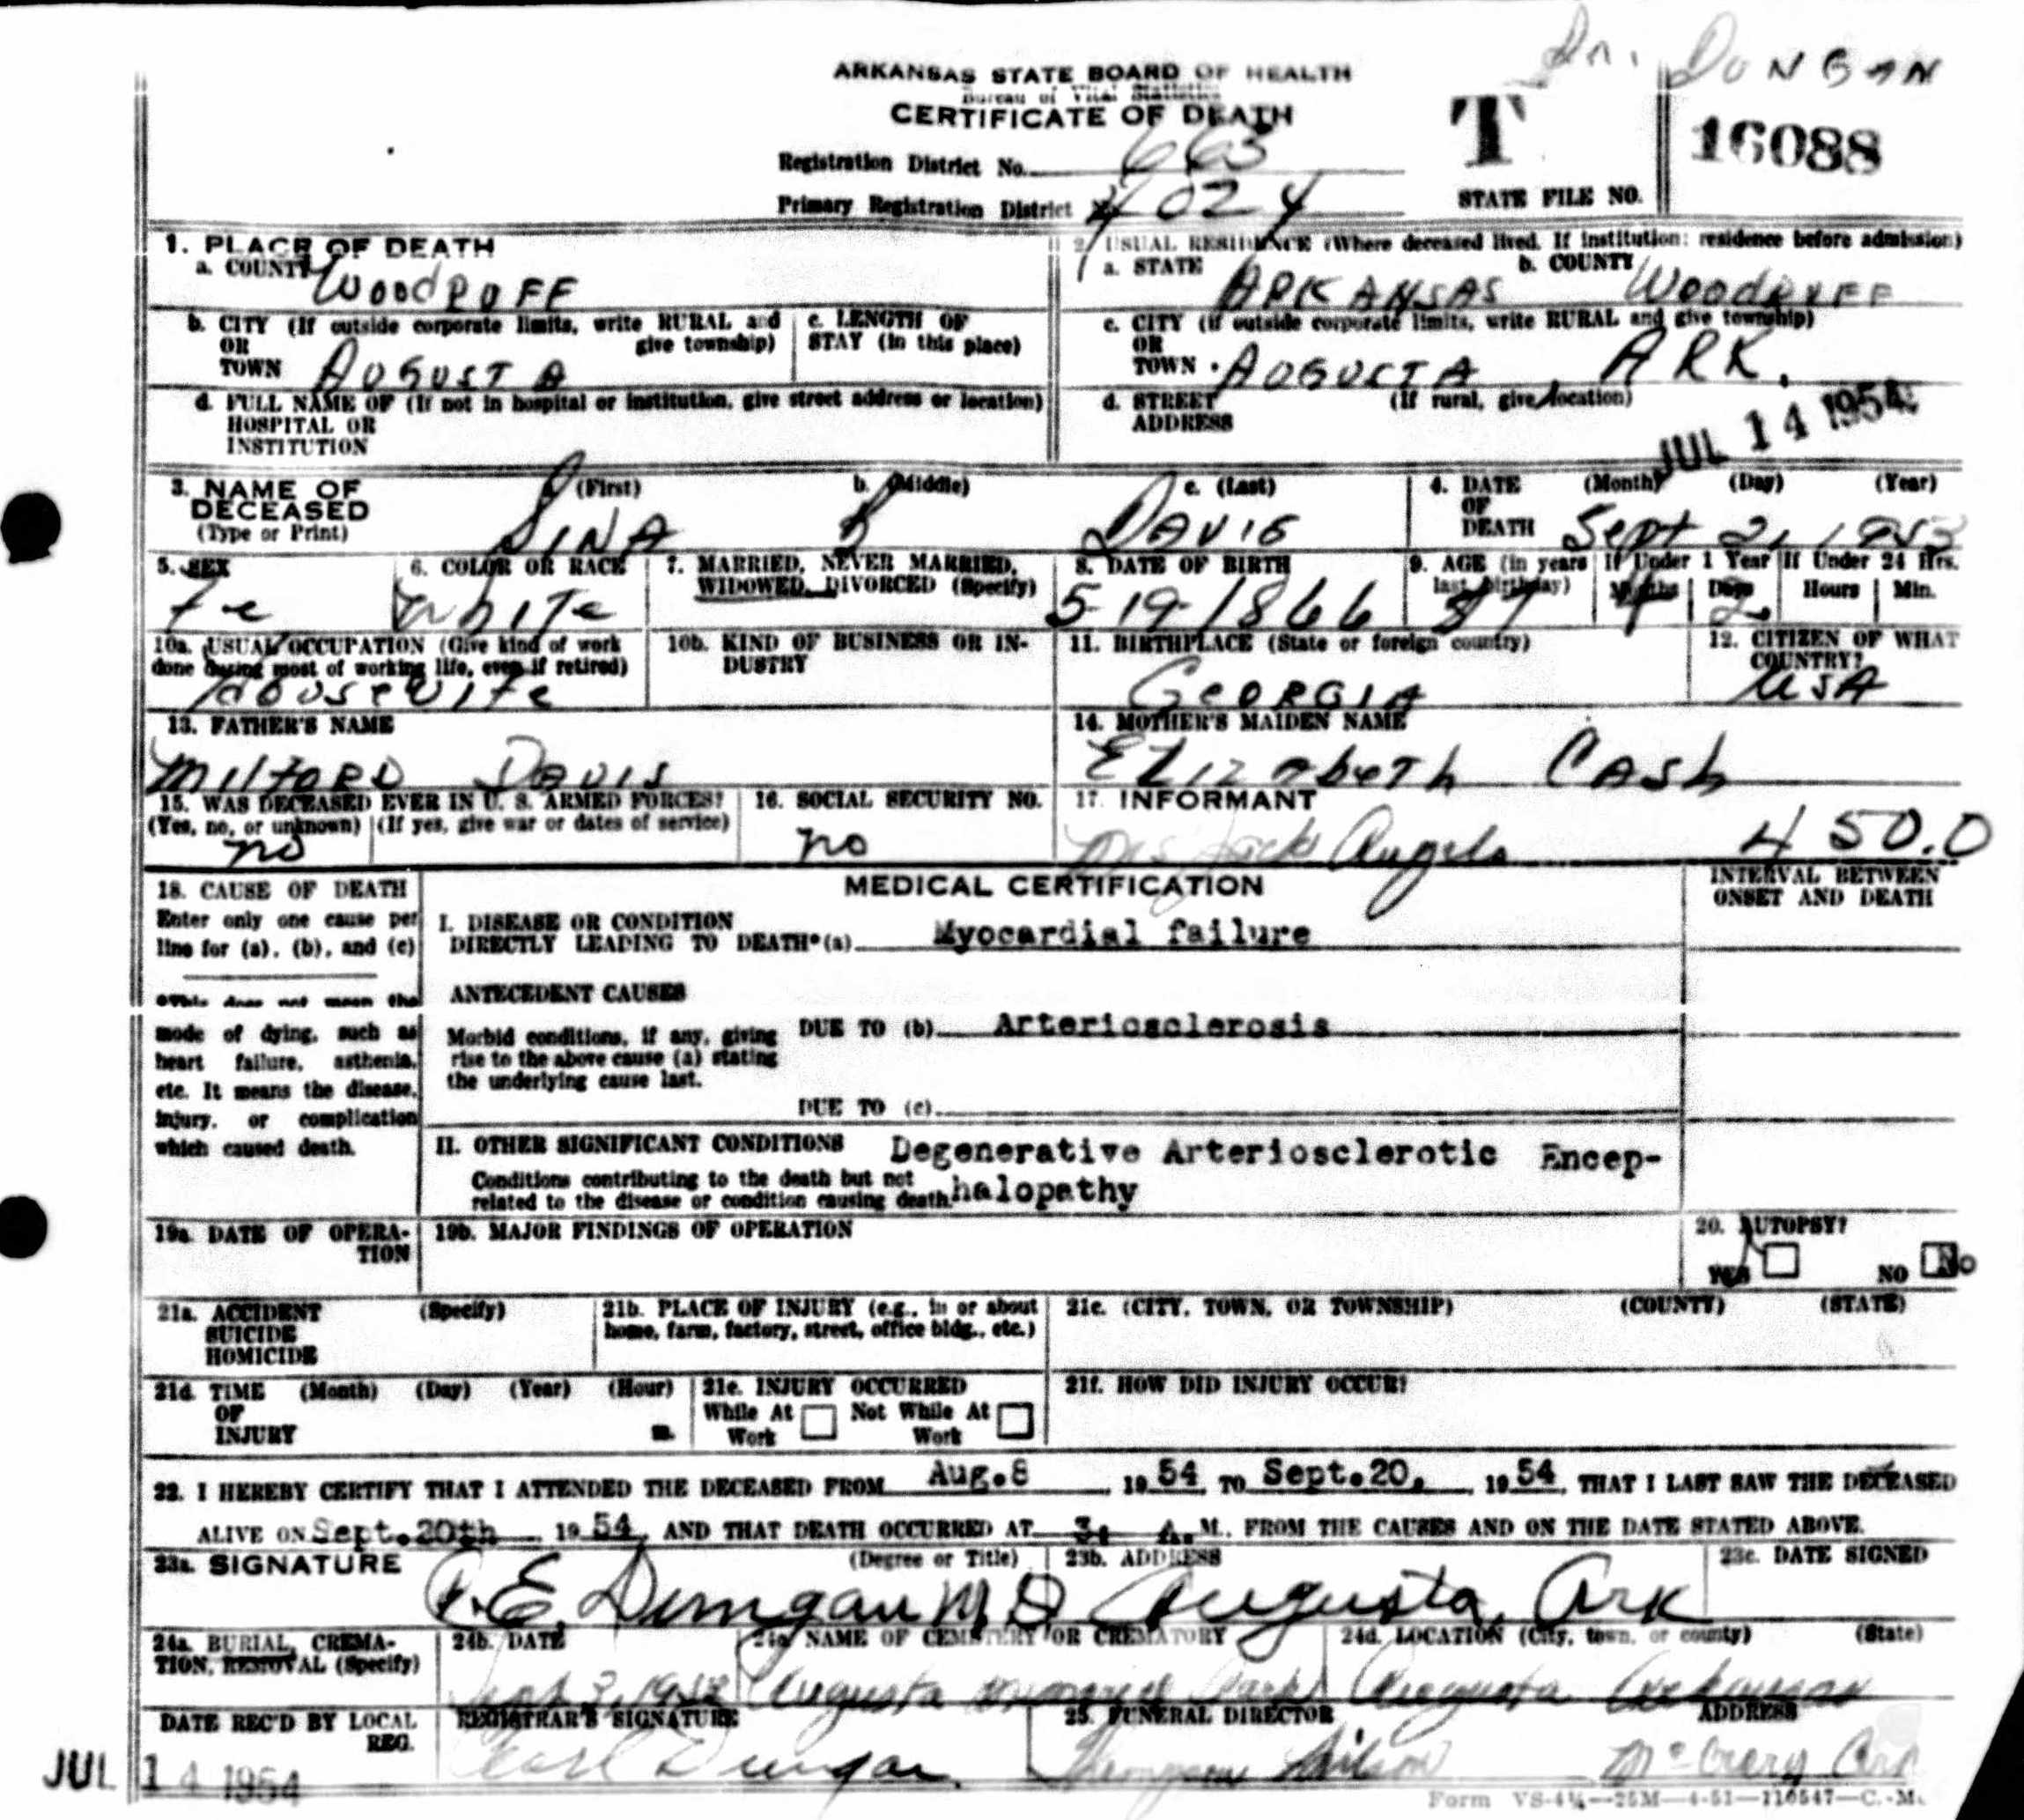 Dr. DUNGAN
ARKANSAS STATE BOARD OF HEALTH
Bureau of Vital Statistics
CERTIFICATE OF DEATH
T
16088
Registration District No. 663
Primary Registration District 4024
STATE FILE NO.
1. PLACE OF DEATH
a. COUNTY WOODRUFF
b. CITY (If outside corporate limits, write RURAL and give township)
OR
TOWN AUGUSTA
c. LENGTH OF STAY (in this place)
d. FULL NAME OF (If not in hospital or institution, give street address or location)
HOSPITAL OR
INSTITUTION
2. USUAL RESIDENCE (Where deceased lived. If institution: residence before admission)
a. STATE ARKANSAS b. COUNTY WOODRUFF
c. CITY (If outside corporate limits, write RURAL and give township)
OR
TOWN AUGUSTA, ARK.
d. STREET ADDRESS (If rural, give location)
JUL 14 1954
3. NAME OF DECEASED (Type or Print)
a. (First) SINA b. (Middle) c. (Last) DAVIS
4. DATE OF DEATH (Month) (Day) (Year) Sept 2, 1953
5. SEX Fe
6. COLOR OR RACE White
7. MARRIED, NEVER MARRIED, WIDOWED, DIVORCED (Specify)
8. DATE OF BIRTH 5-19-1866
9. AGE (in years last birthday) 87
If Under 1 Year Months 4 Days 2
If Under 24 Hrs. Hours Min.
10a. USUAL OCCUPATION (Give kind of work done during most of working life, even if retired)
Housewife
10b. KIND OF BUSINESS OR INDUSTRY
11. BIRTHPLACE (State or foreign country)
GEORGIA
12. CITIZEN OF WHAT COUNTRY?
USA
13. FATHER'S NAME
MILFORD DAVIS
14. MOTHER'S MAIDEN NAME
ELIZABETH CASH
15. WAS DECEASED EVER IN U. S. ARMED FORCES?
(Yes, no, or unknown) (If yes, give war or dates of service)
no
16. SOCIAL SECURITY NO.
no
17. INFORMANT
Mrs Jack Angelo
450.0
18. CAUSE OF DEATH
Enter only one cause per line for (a), (b), and (c)
*This does not mean the mode of dying, such as heart failure, asthenia, etc. It means the disease, injury, or complication which caused death.
MEDICAL CERTIFICATION
INTERVAL BETWEEN ONSET AND DEATH
I. DISEASE OR CONDITION
DIRECTLY LEADING TO DEATH*(a) Myocardial failure
ANTECEDENT CAUSES
Morbid conditions, if any, giving rise to the above cause (a) stating the underlying cause last.
DUE TO (b) Arteriosclerosis
DUE TO (c)
II. OTHER SIGNIFICANT CONDITIONS Degenerative Arteriosclerotic Encep-
Conditions contributing to the death but not related to the disease or condition causing death. halopathy
19a. DATE OF OPERATION
19b. MAJOR FINDINGS OF OPERATION
20. AUTOPSY?
YES NO No
21a. ACCIDENT (Specify)
SUICIDE
HOMICIDE
21b. PLACE OF INJURY (e.g., in or about home, farm, factory, street, office bldg., etc.)
21c. (CITY, TOWN, OR TOWNSHIP) (COUNTY) (STATE)
21d. TIME (Month) (Day) (Year) (Hour)
OF
INJURY m.
21e. INJURY OCCURRED
While At Work Not While At Work
21f. HOW DID INJURY OCCUR?
22. I HEREBY CERTIFY THAT I ATTENDED THE DECEASED FROM Aug.8, 1954, TO Sept.20, 1954, THAT I LAST SAW THE DECEASED
ALIVE ON Sept.20th, 1954, AND THAT DEATH OCCURRED AT 3: A. M., FROM THE CAUSES AND ON THE DATE STATED ABOVE.
23a. SIGNATURE (Degree or Title)
Dungan M.D.
23b. ADDRESS
Augusta, Ark
23c. DATE SIGNED
24a. BURIAL, CREMATION, REMOVAL (Specify)
24b. DATE
Sept 3, 1953
24c. NAME OF CEMETERY OR CREMATORY
Augusta Memorial Park
24d. LOCATION (City, town, or county) (State)
Augusta Arkansas
DATE REC'D BY LOCAL REG.
JUL 14 1954
REGISTRAR'S SIGNATURE
Earl Dungan
25. FUNERAL DIRECTOR ADDRESS
Thompson Wilson McCrory Ark
Form VS-4¼—25M—4-51—110547—C.-M.